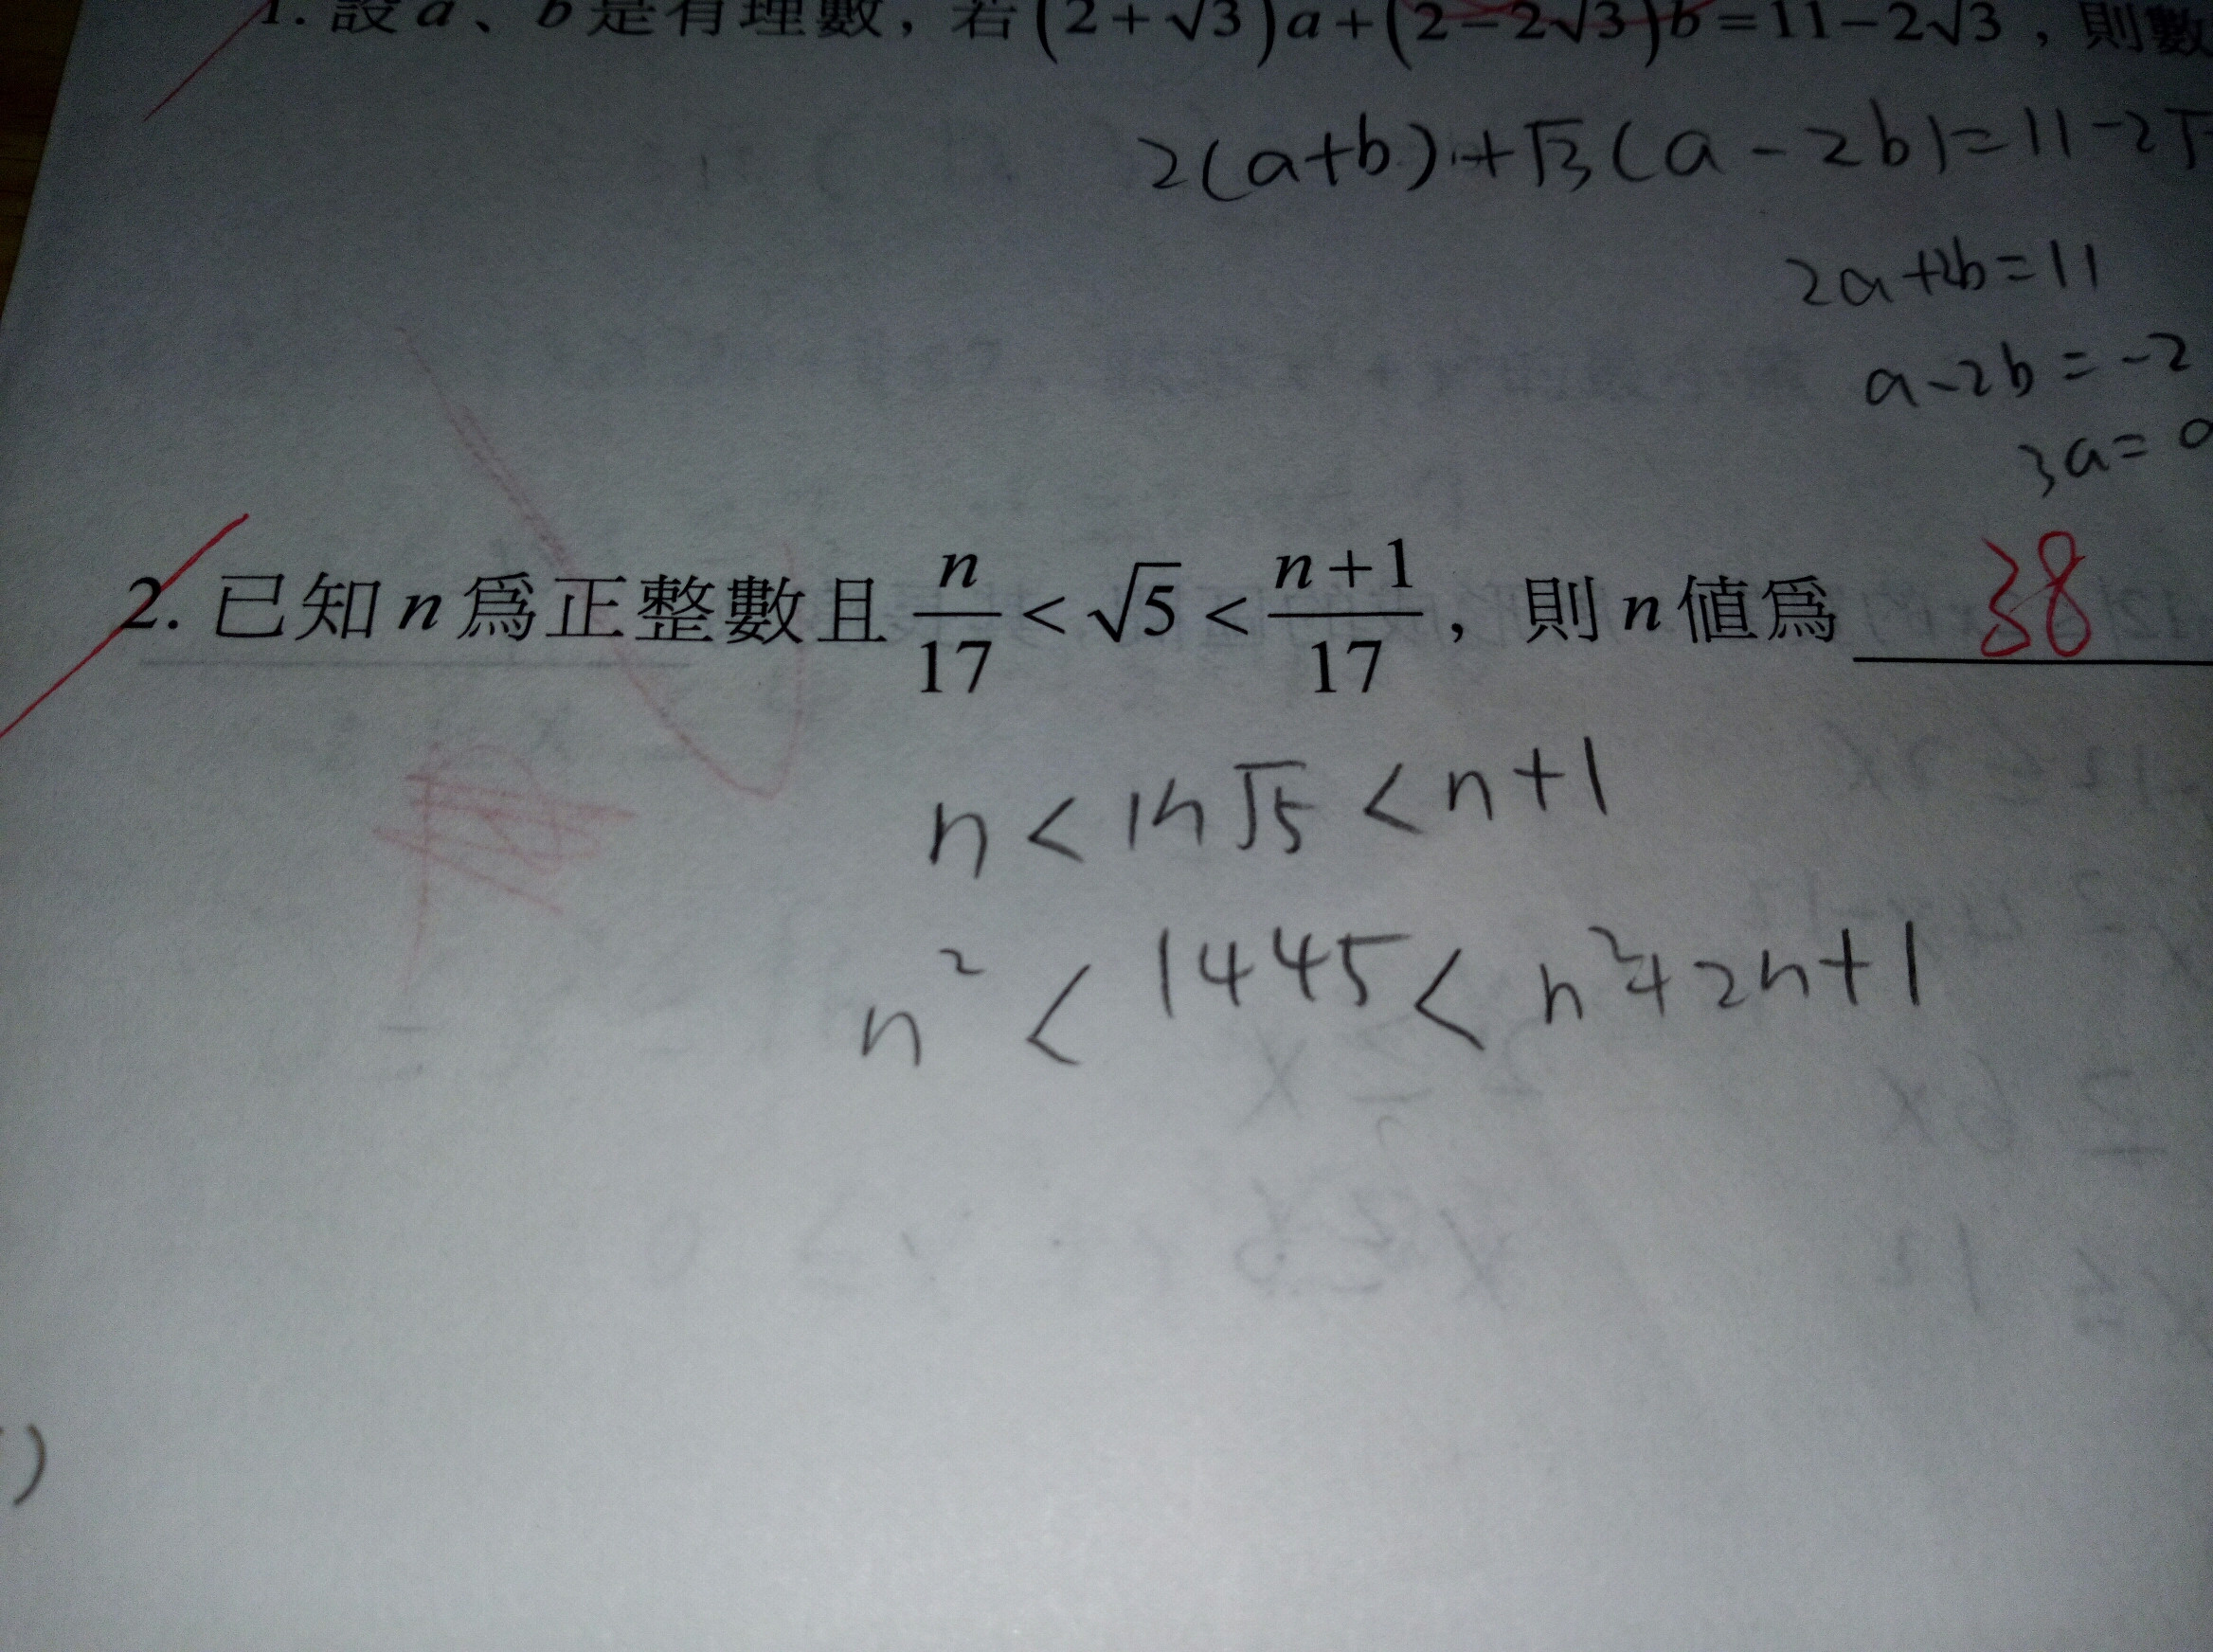 1. 設 a、b 是有理數，若 (2+√3)a+(2−2√3)b=11−2√3，則數
2(a+b)+√3(a−2b)=11−2√
2a+2b=11
a−2b=−2
3a=
2. 已知 n 爲正整數且 n/17 < √5 < (n+1)/17，則 n 值爲 38
n < 17√5 < n+1
n² < 1445 < n²+2n+1
)